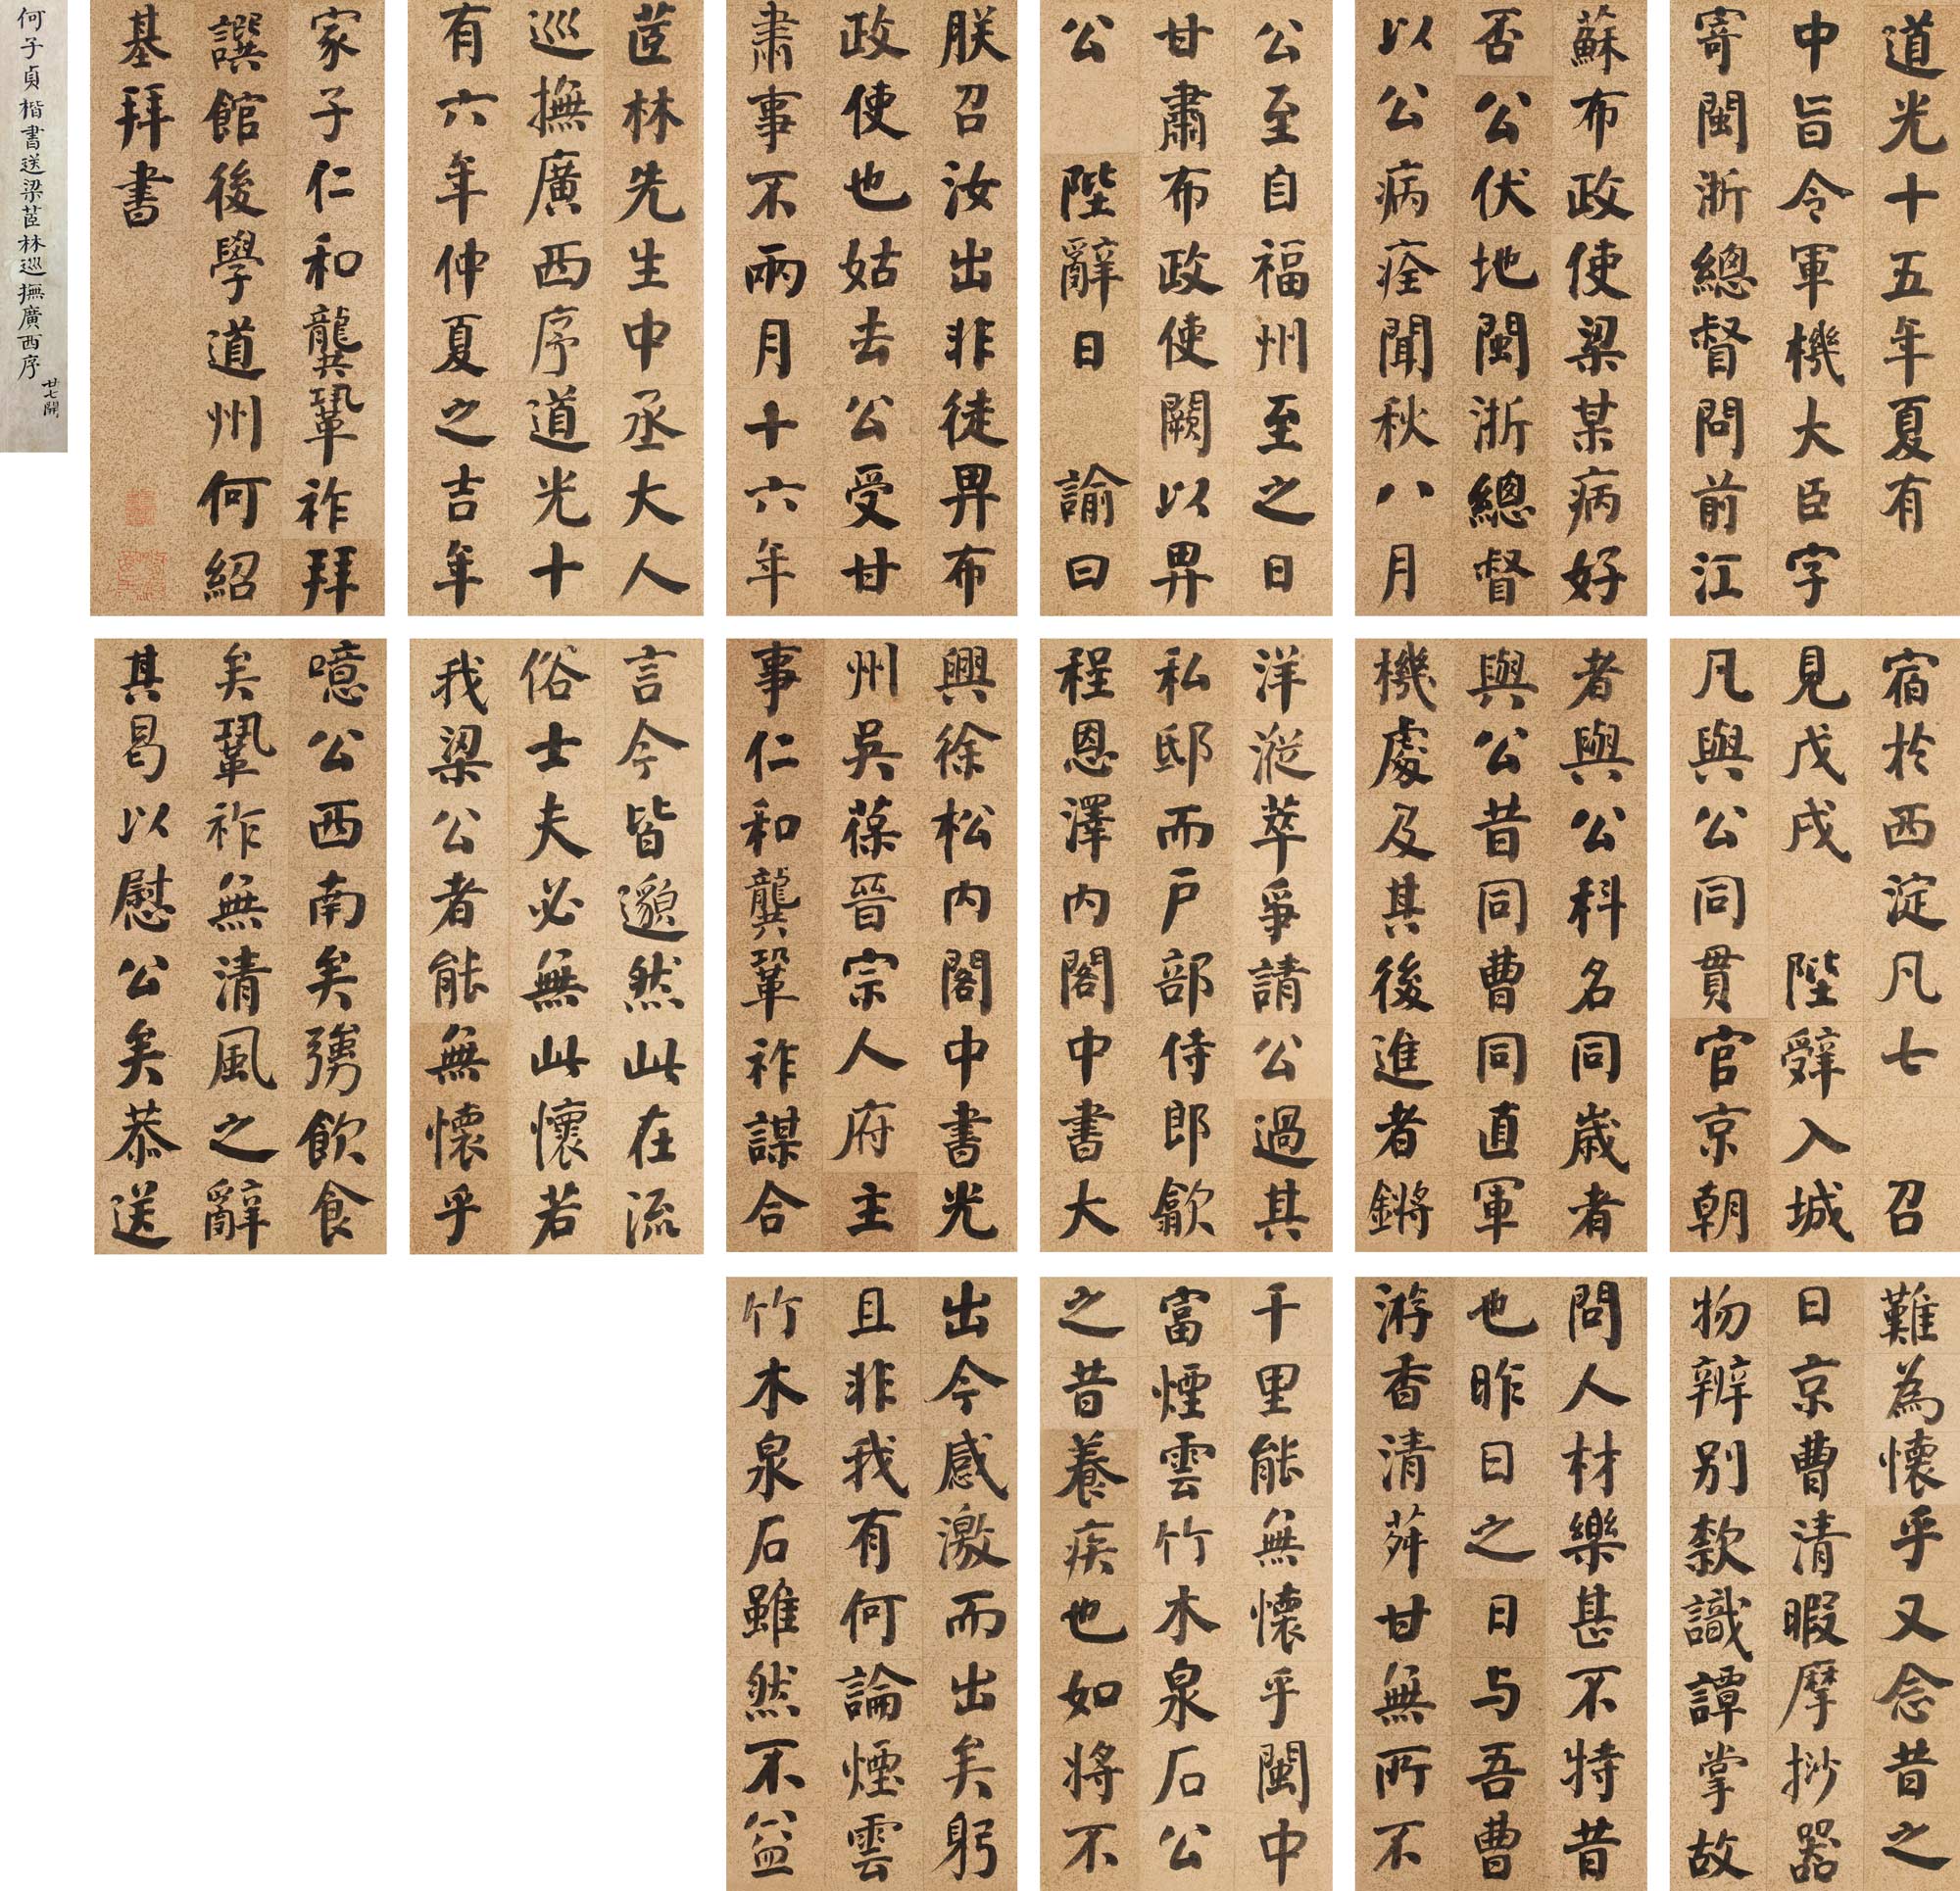 何子貞楷書送梁茝林巡撫廣西序
廿七開
道光十五年夏有
中旨令軍機大臣字
寄閩浙總督問前江
蘇布政使梁某病好
否公伏地閩浙總督
以公病痊聞秋八月
公至自福州至之日
甘肅布政使闕以畀
公 陛辭日 諭曰
朕召汝出非徒畀布
政使也姑去公受甘
肅事不兩月十六年
茝林先生中丞大人
巡撫廣西序道光十
有六年仲夏之吉年
家子仁和龔鞏祚拜
譔館後學道州何紹
基拜書
宿於西淀凡七 召
見戊戌 陛辭入城
凡與公同貫官京朝
者與公科名同歲者
與公昔同曹同直軍
機處及其後進者鏘
洋漎萃爭請公過其
私邸而戶部侍郎歙
程恩澤內閣中書大
興徐松內閣中書光
州吳葆晉宗人府主
事仁和龔鞏祚謀合
言今皆邈然此在流
俗士夫必無此懷若
我梁公者能無懷乎
噫公西南矣彊飲食
矣鞏祚無清風之辭
其曷以慰公矣恭送
難為懷乎又念昔之
日京曹清暇摩挱器
物辨别款識譚掌故
問人材樂甚不特昔
也昨日之日与吾曹
游香清茻甘無所不
千里能無懷乎閩中
富煙雲竹木泉石公
之昔養疾也如將不
出今感激而出矣躬
且非我有何論煙雲
竹木泉石雖然不盆